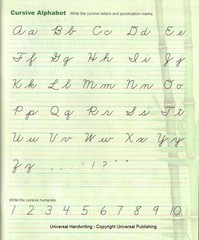 Cursive Alphabet Write the cursive letters and punctuation marks.
Aa Bb Cc Dd Ee
Ff Gg Hh Ii Jj
Kk Ll Mm Nn Oo
Pp Qq Rr Ss Tt
Uu Vv Ww Xx Yy
Zz . , ' ! ?
Write the cursive numerals.
1 2 3 4 5 6 7 8 9 10
Universal Handwriting - Copyright Universal Publishing